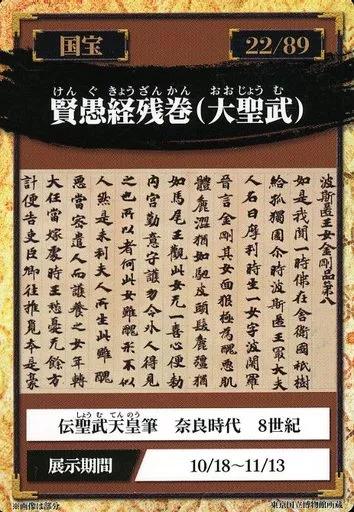 国宝
22/89
けんぐきょうざんかん　おおじょうむ
賢愚経残巻(大聖武)
波斯匿王女金剛品第八
如是我聞一時佛在舍衛國祇樹
給孤獨園尒時波斯匿王最大夫
人名曰摩利時生一女字波闍羅
晉言金剛其女面狠極為醜惡肌
體麁澀猶如駝皮頭髮麁强猶
如馬尾王觀此女无一喜心便勅
内宮勤意守護勿令外人得見
之也所以者何此女雖醜形不似
人然是末利夫人所生此雖醜
惡當密遣人而護養之女年轉
大任當嫁處時王愁憂无餘方
計便告吏臣卿往推覓本是豪
しょうむてんのう
伝聖武天皇筆　奈良時代　8世紀
展示期間
10/18~11/13
※画像は部分
東京国立博物館所蔵